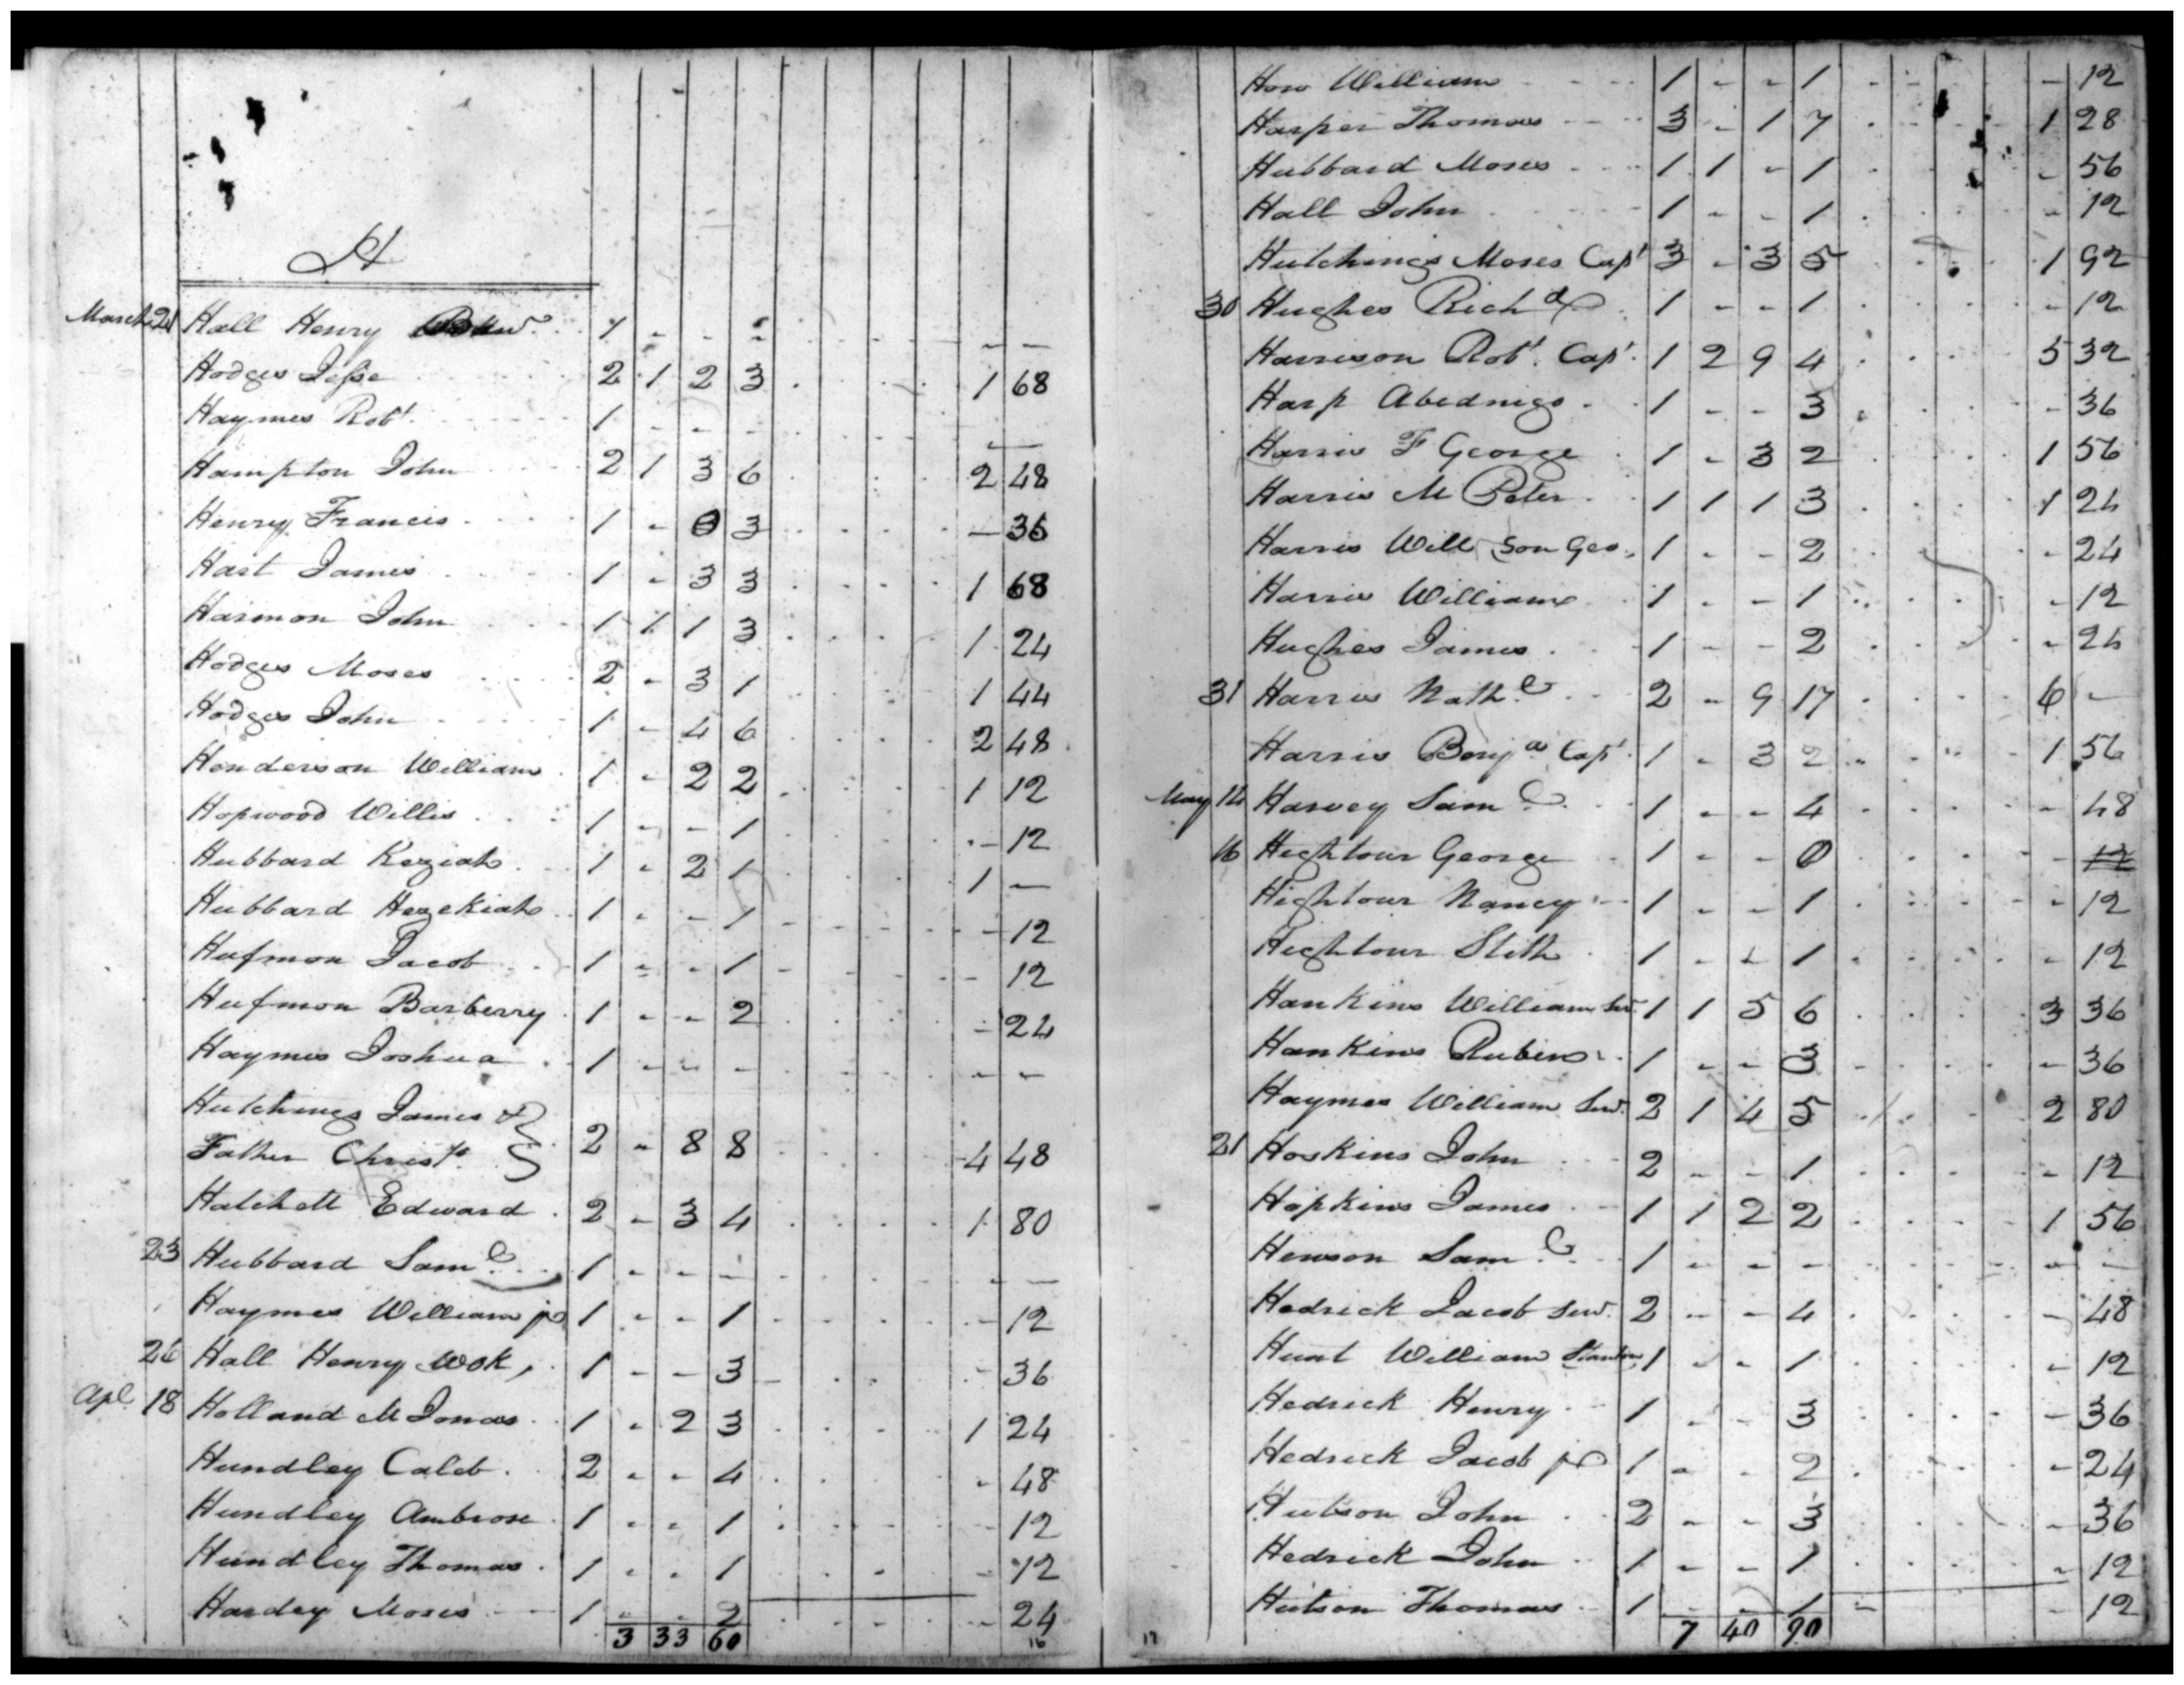 H
March 21 Hall Henry 1 - - - - -
Hodges Jesse 2 1 2 3 1 68
Haymes Robt. 1 - - - - -
Hampton John 2 1 3 6 2 48
Henry Francis 1 - 0 3 - 36
Hart James 1 - 3 3 1 68
Harmon John 1 1 1 3 1 24
Hodges Moses 2 - 3 1 1 44
Hodges John 1 - 4 6 2 48
Henderson William 1 - 2 2 1 12
Hopwood Willis 1 - - 1 - 12
Hubbard Keziah 1 - 2 1 1 -
Hubbard Hezekiah 1 - - 1 - 12
Hufmon Jacob 1 - - 1 - 12
Hufmon Barberry 1 - - 2 - 24
Haymes Joshua 1 - - - - -
Hutchings James &
Father Christo. 2 - 8 8 4 48
Hatchett Edward 2 - 3 4 1 80
23 Hubbard Saml. 1 - - - - -
Haymes William jr 1 - - 1 - 12
26 Hall Henry 1 - - 3 - 36
Apl 18 Holland M Jonas 1 - 2 3 1 24
Hundley Caleb 2 - - 4 - 48
Hundley Ambrose 1 - - 1 - 12
Hundley Thomas 1 - - 1 - 12
Hardey Moses 1 - - 2 - 24
3 33 60
16
How William 1 - - 1 - 12
Harper Thomas 3 - 1 7 1 28
Hubbard Moses 1 1 - 1 - 56
Hall John 1 - - 1 - 12
Hutchings Moses Capt 3 - 3 5 1 92
30 Hughes Richd 1 - - 1 - 12
Harrison Robt. Capt. 1 2 9 4 5 32
Harp Abednigo 1 - - 3 - 36
Harris F George 1 - 3 2 1 56
Harris M Peter 1 1 1 3 1 24
Harris Will Son Geo. 1 - - 2 - 24
Harris William 1 - - 1 - 12
Hughes James 1 - - 2 - 24
31 Harris Nathl. 2 - 9 17 6 -
Harris Benja Capt. 1 - 3 2 1 56
May 14 Harvey Saml. 1 - - 4 - 48
16 Hightour George 1 - - 0 - 12
Hightour Nancy 1 - - 1 - 12
Hightour Stith 1 - - 1 - 12
Hankins William Senr. 1 1 5 6 3 36
Hankins Rubin 1 - - 3 - 36
Haymes William Senr. 2 1 4 5 2 80
21 Hoskins John 2 - - 1 - 12
Hopkins James 1 1 2 2 1 56
Henson Saml. 1 - - - - -
Hedrick Jacob Senr. 2 - - 4 - 48
Hunt William Stanton 1 - - 1 - 12
Hedrick Henry 1 - - 3 - 36
Hedrick Jacob jr 1 - - 2 - 24
Hutson John 2 - - 3 - 36
Hedrick John 1 - - 1 - 12
Hutson Thomas 1 - - 1 - 12
7 40 90
17